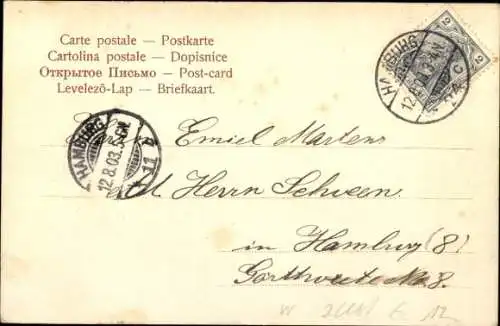 Carte postale — Postkarte
Cartolina postale — Dopisnice
Открытое Письмо — Post-card
Levelező-Lap — Briefkaart.
HAMBURG
12.8.03
2 2
HAMBURG
12.8.03
11
Herrn Emiel Martens
Herrn Schween
in Hamburg (8)
No 8.